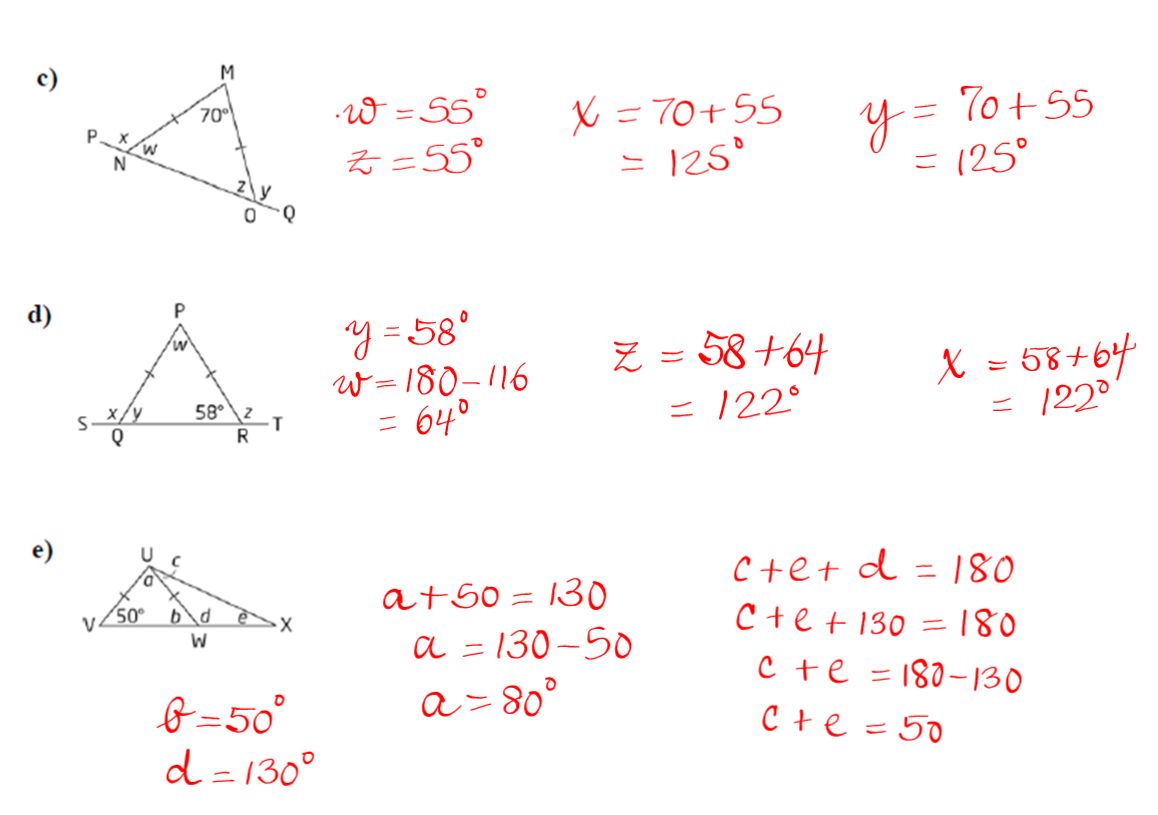 c)
M
70°
P x
N w
z y
O Q
·w = 55°
z = 55°
x = 70+55
= 125°
y = 70+55
= 125°
d)
P
w
S x y 58° z T
Q R
y = 58°
w = 180-116
= 64°
z = 58+64
= 122°
x = 58+64
= 122°
e)
U c
a
V 50° b d e X
W
b = 50°
d = 130°
a+50 = 130
a = 130-50
a = 80°
c+e+d = 180
c+e+130 = 180
c+e = 180-130
c+e = 50